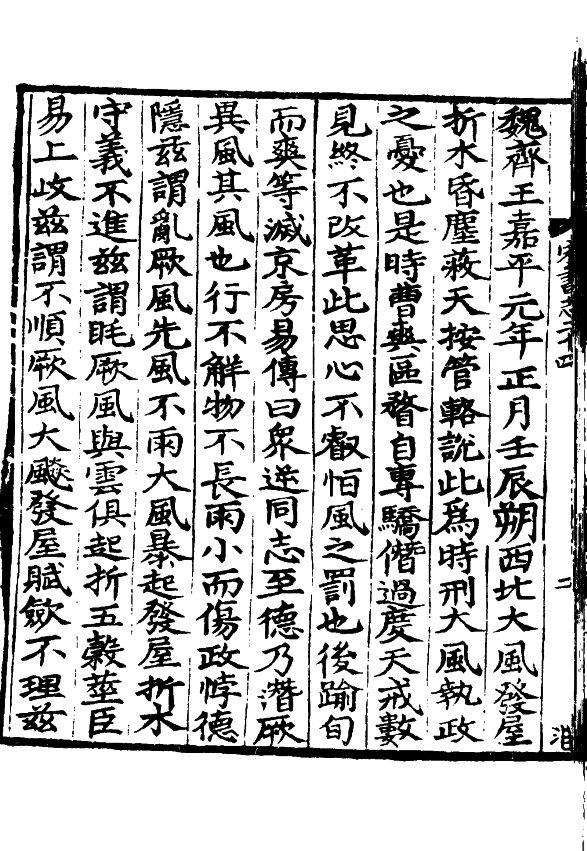 魏齊王嘉平元年正月壬辰朔西北大風發屋
折水昏塵蔽天按管輅說此爲時刑大風執政
之憂也是時曹爽區瞀自專驕僭過度天戒數
見終不改革此思心不叡恒風之罰也後踰旬
而爽等滅京房易傳曰衆逆同志至德乃潛厥
異風其風也行不解物不長雨小而傷政悖德
隱茲謂亂厥風先風不雨大風暴起發屋折水
守義不進茲謂眊厥風與雲俱起折五穀莖臣
易上政茲謂不順厥風大飈發屋賦斂不理茲
二